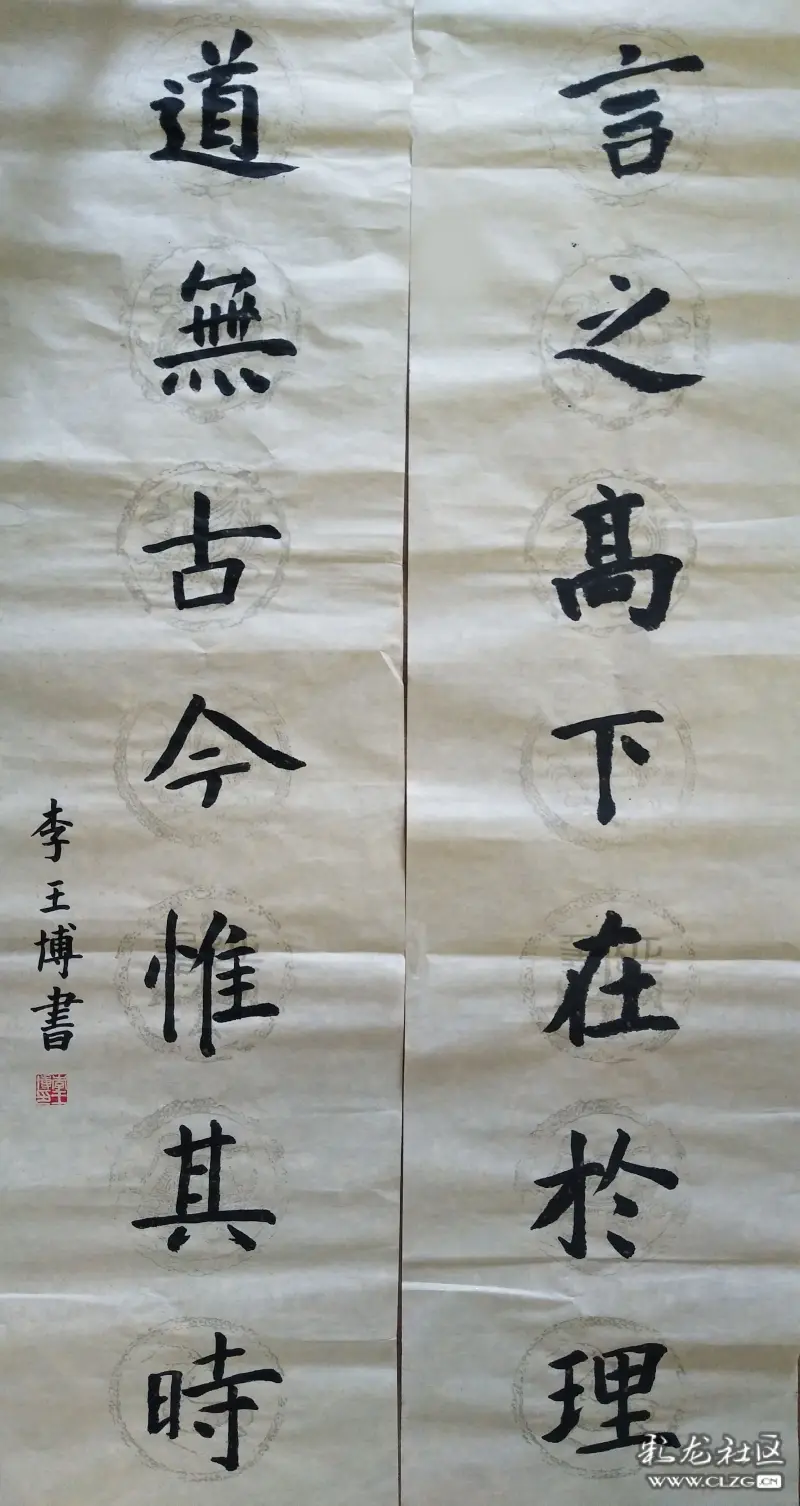 言之高下在於理
道無古今惟其時
李王博書
彩龙社区
WWW.CLZG.CN